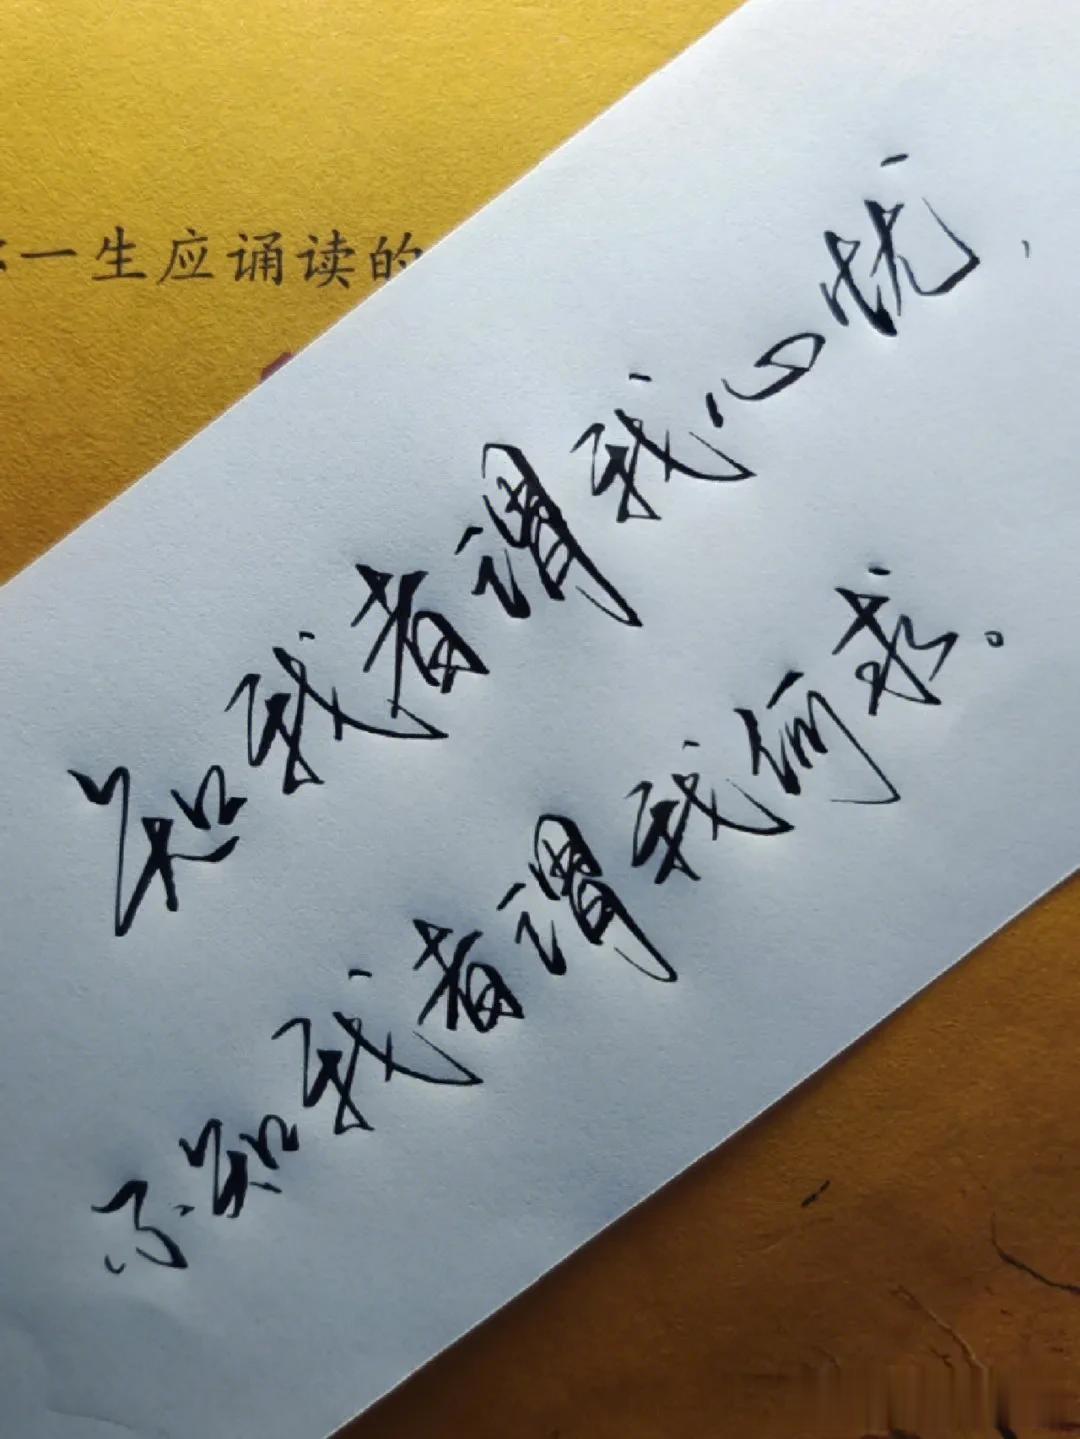 一生应诵读的
知我者谓我心忧，
不知我者谓我何求。